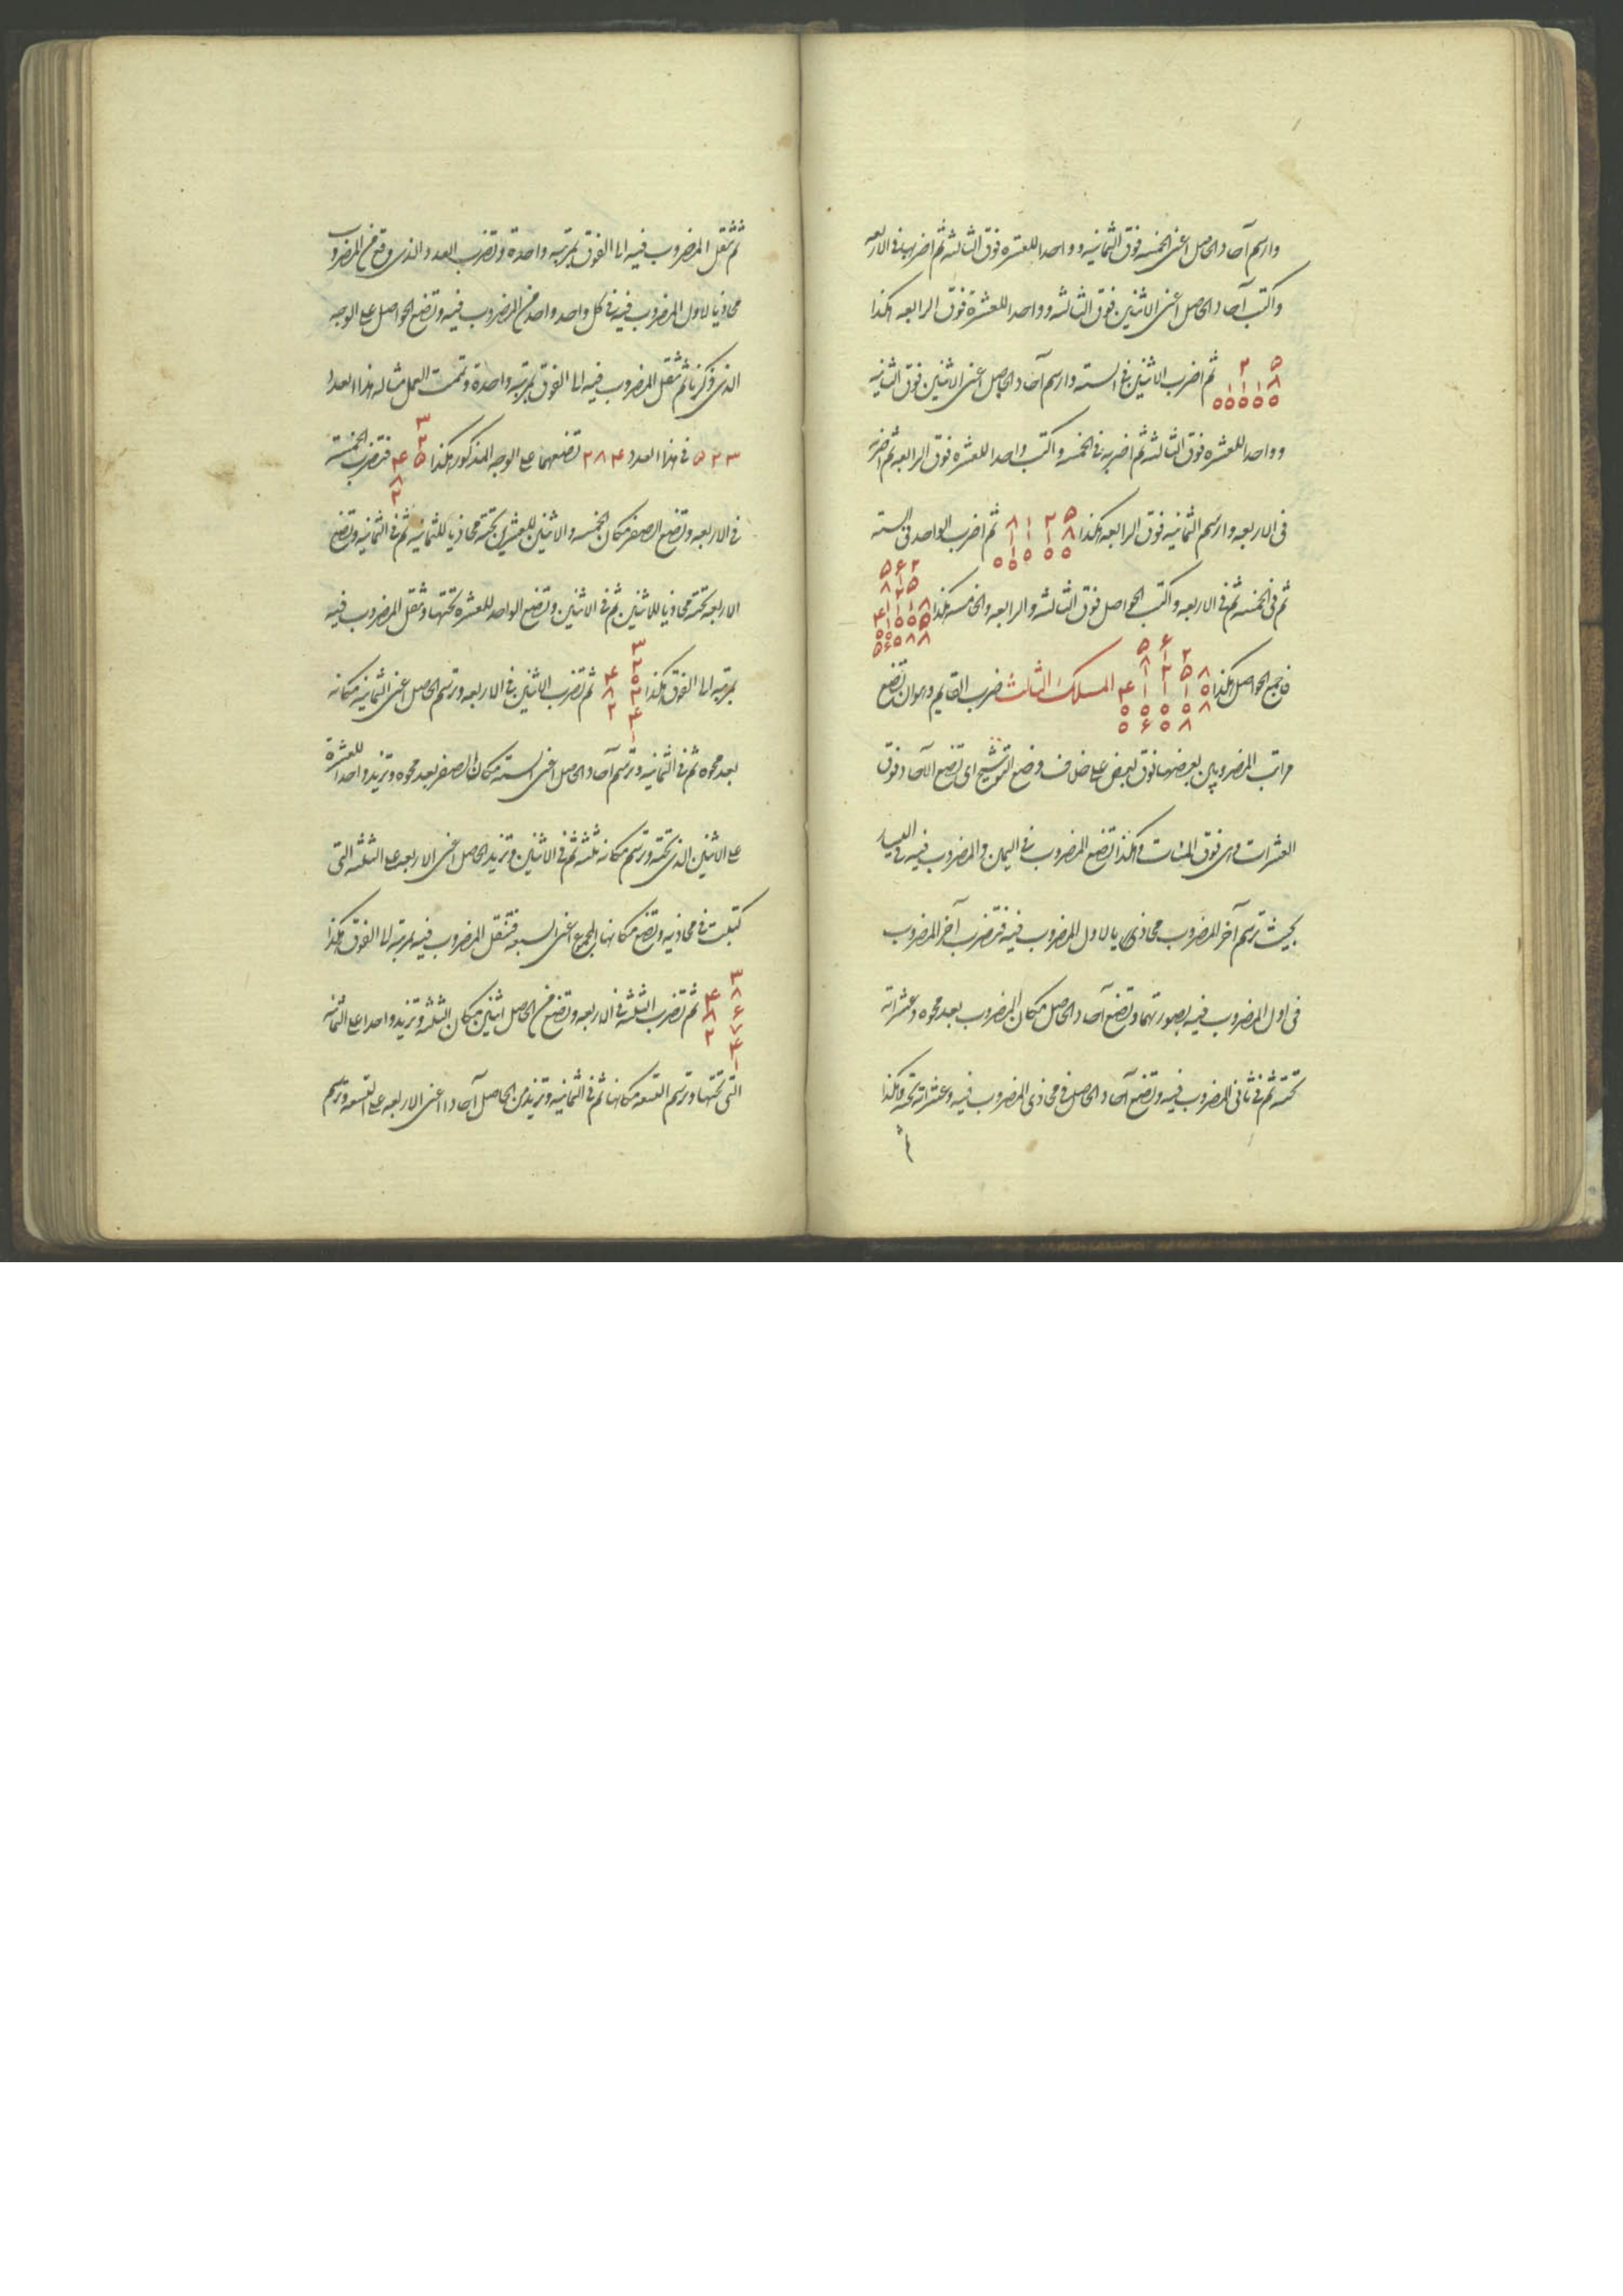 وارسم آحاد الحاصل اعنی الخمسه فوق الثمانیه و واحدا للعشره فوق الثالثه ثم اضربها فی الاربعه
واکتب آحاد الحاصل اعنی الاثنین فوق الثالثه و واحدا للعشرة فوق الرابعه هکذا
ثم اضرب الاثنین فی السته وارسم آحاد الحاصل اعنی الاثنین فوق الثانیه
و واحدا للعشره فوق الثالثه ثم اضربه فی الخمسه واکتب واحدا للعشره فوق الرابعه ثم اضربه
فی الاربعه وارسم الثمانیه فوق الرابعه هکذا ثم اضرب الواحد فی السته
ثم فی الخمسه ثم فی الاربعه واکتب الحواصل فوق الثالثه والرابعه والخامسه هکذا
فاجمع الحواصل هکذا المسلک الثالث ضرب القایم وهو ان تضع
مراتب المضروبین بعضها فوق بعض علی خلاف وضع التوشیح ای تضع الآحاد فوق
العشرات وهی فوق المئات وهکذا تضع المضروب فی الیمین والمضروب فیه فی الیسار
بحیث ترسم آخر المضروب محاذیا لاول المضروب فیه فتضرب آخر المضروب
فی اول المضروب فیه بصورتهما وتضع آحاد الحاصل مکان المضروب بعد محوه وعشراته
تحته ثم فی ثانی المضروب فیه وتضع آحاد الحاصل فی محاذی المضروب فیه وعشراته تحته وهکذا
ثم
ثم تنقل المضروب فیه الی الفوق بمرتبه واحدة وتضرب العدد الذی وقع من المضروب
محاذیا لاول المضروب فیه فی کل واحد واحد من المضروب فیه وتضع الحواصل علی الوجه
الذی ذکرنا ثم تنقل المضروب فیه الی الفوق بمرتبه واحدة وتمت العمل مثاله هذا العدد
۵۲۳ فی هذا العدد ۲۸۴ تضعهما علی الوجه المذکور هکذا فتضرب الخمسة
فی الاربعه وتضع الصفر مکان الخمسه والاثنین للعشرین تحته محاذیا للثمانیه ثم فی الثمانیه وتضع
الاربعه تحته محاذیا للاثنین ثم فی الاثنین وتضع الواحد للعشره تحتها وتنقل المضروب فیه
بمرتبه الی الفوق هکذا ثم تضرب الاثنین فی الاربعه وترسم الحاصل اعنی الثمانیه مکانه
بعد محوه ثم فی الثمانیه وترسم آحاد الحاصل اعنی السته مکان الصفر بعد محوه وتزید واحدا للعشرة
علی الاثنین الذی تحته وترسم مکانه ثلثه ثم فی الاثنین وتزید الحاصل اعنی الاربعه علی الثلثه التی
کتبت فی محاذیه وتضع مکانها المجموع اعنی السبعه فتنقل المضروب فیه بمرتبه الی الفوق هکذا
ثم تضرب الثلثه فی الاربعه وتضع من الحاصل اثنین مکان الثلثه وتزید واحدا علی الثمانیه
التی تحتها وترسم التسعه مکانها ثم فی الثمانیه وتزید من الحاصل آحاده اعنی الاربعه علی التسعه وترسم